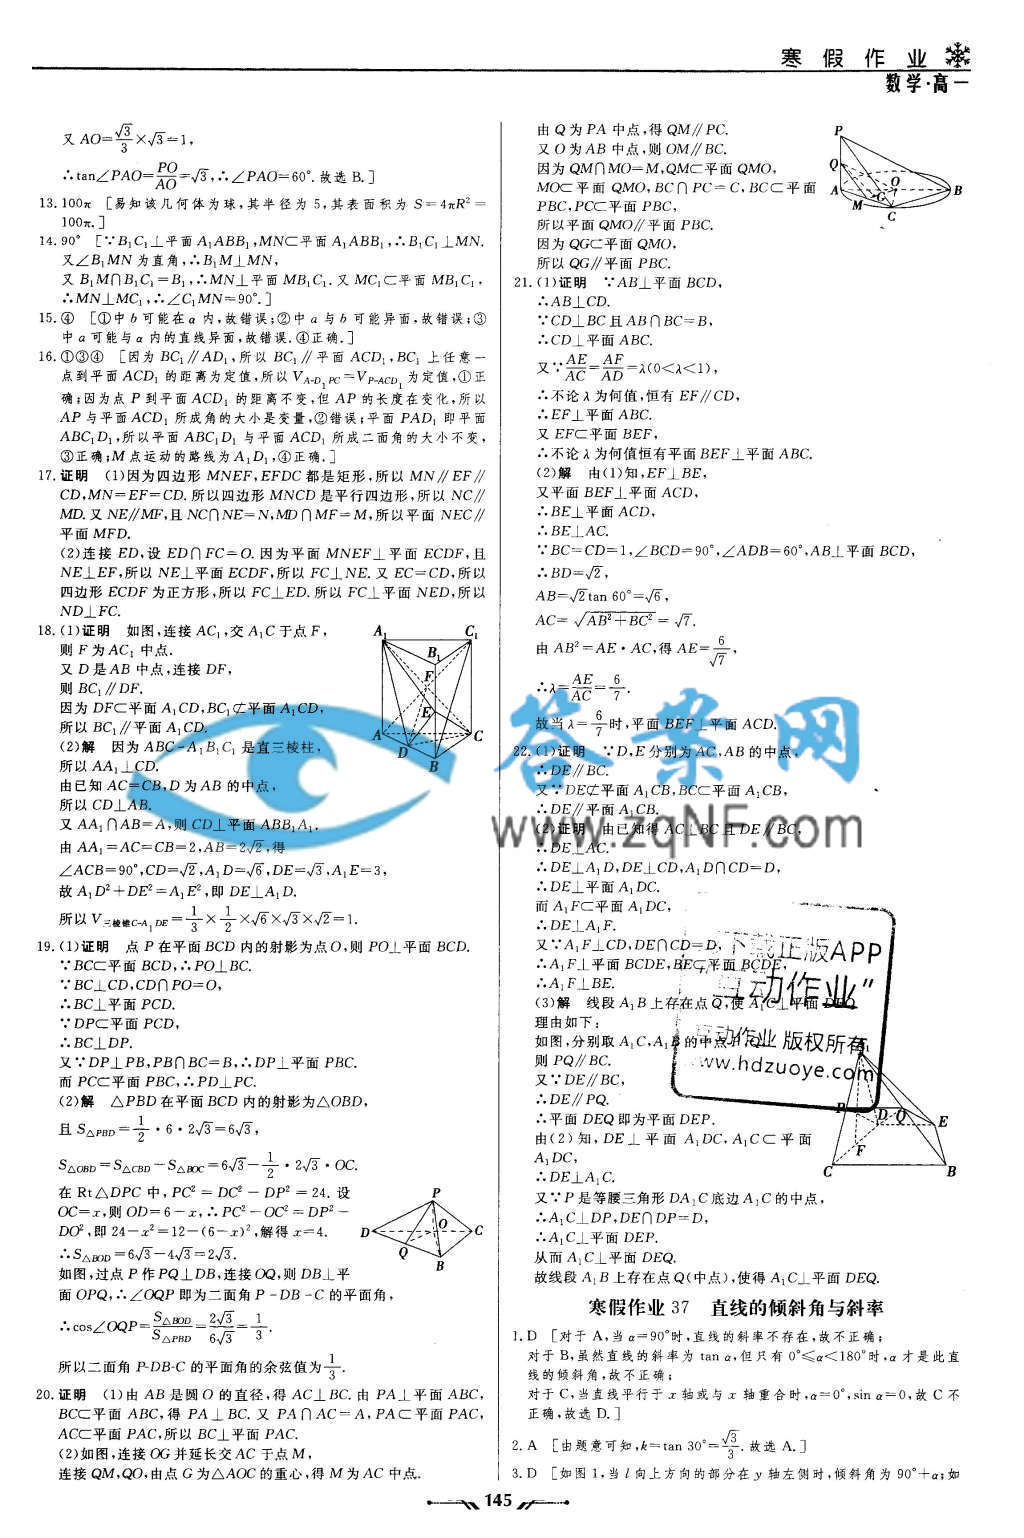 寒假作业
数学·高一
又 AO=√3/3×√3=1,
∴tan∠PAO=PO/AO=√3,∴∠PAO=60°.故选 B.]
13.100π [易知该几何体为球,其半径为 5,其表面积为 S=4πR²=
100π.]
14.90° [∵B₁C₁⊥平面 A₁ABB₁,MN⊂平面 A₁ABB₁,∴B₁C₁⊥MN.
又∠B₁MN 为直角,∴B₁M⊥MN,
又 B₁M∩B₁C₁=B₁,∴MN⊥平面 MB₁C₁.又 MC₁⊂平面 MB₁C₁,
∴MN⊥MC₁,∴∠C₁MN=90°.]
15.④ [①中 b 可能在 α 内,故错误;②中 a 与 b 可能异面,故错误;③
中 a 可能与 α 内的直线异面,故错误.④正确.]
16.①③④ [因为 BC₁∥AD₁,所以 BC₁∥平面 ACD₁,BC₁ 上任意一
点到平面 ACD₁ 的距离为定值,所以 V_{A-D₁PC}=V_{P-ACD₁}为定值,①正
确;因为点 P 到平面 ACD₁ 的距离不变,但 AP 的长度在变化,所以
AP 与平面 ACD₁ 所成角的大小是变量,②错误;平面 PAD₁ 即平面
ABC₁D₁,所以平面 ABC₁D₁ 与平面 ACD₁ 所成二面角的大小不变,
③正确;M 点运动的路线为 A₁D₁,④正确.]
17.证明 (1)因为四边形 MNEF,EFDC 都是矩形,所以 MN∥EF∥
CD,MN=EF=CD.所以四边形 MNCD 是平行四边形,所以 NC∥
MD.又 NE∥MF,且 NC∩NE=N,MD∩MF=M,所以平面 NEC∥
平面 MFD.
(2)连接 ED,设 ED∩FC=O.因为平面 MNEF⊥平面 ECDF,且
NE⊥EF,所以 NE⊥平面 ECDF,所以 FC⊥NE.又 EC=CD,所以
四边形 ECDF 为正方形,所以 FC⊥ED.所以 FC⊥平面 NED,所以
ND⊥FC.
18.(1)证明 如图,连接 AC₁,交 A₁C 于点 F,
则 F 为 AC₁ 中点.
又 D 是 AB 中点,连接 DF,
则 BC₁∥DF.
因为 DF⊂平面 A₁CD,BC₁⊄平面 A₁CD,
所以 BC₁∥平面 A₁CD.
(2)解 因为 ABC-A₁B₁C₁ 是直三棱柱,
所以 AA₁⊥CD.
由已知 AC=CB,D 为 AB 的中点,
所以 CD⊥AB.
又 AA₁∩AB=A,则 CD⊥平面 ABB₁A₁.
由 AA₁=AC=CB=2,AB=2√2,得
∠ACB=90°,CD=√2,A₁D=√6,DE=√3,A₁E=3,
故 A₁D²+DE²=A₁E²,即 DE⊥A₁D.
所以 V_{三棱锥C-A₁DE}=1/3×1/2×√6×√3×√2=1.
A₁ C₁ B₁ F E A D B C
19.(1)证明 点 P 在平面 BCD 内的射影为点 O,则 PO⊥平面 BCD.
∵BC⊂平面 BCD,∴PO⊥BC.
∵BC⊥CD,CD∩PO=O,
∴BC⊥平面 PCD.
∵DP⊂平面 PCD,
∴BC⊥DP.
又∵DP⊥PB,PB∩BC=B,∴DP⊥平面 PBC.
而 PC⊂平面 PBC,∴PD⊥PC.
(2)解 △PBD 在平面 BCD 内的射影为△OBD,
且 S△PBD=1/2·6·2√3=6√3,
S△OBD=S△CBD-S△BOC=6√3-1/2·2√3·OC.
在 Rt△DPC 中,PC²=DC²-DP²=24.设
OC=x,则 OD=6-x,∴PC²-OC²=DP²-
DO²,即 24-x²=12-(6-x)²,解得 x=4.
∴S△BOD=6√3-4√3=2√3.
如图,过点 P 作 PQ⊥DB,连接 OQ,则 DB⊥平
面 OPQ,∴∠OQP 即为二面角 P-DB-C 的平面角,
∴cos∠OQP=S△BOD/S△PBD=2√3/6√3=1/3.
所以二面角 P-DB-C 的平面角的余弦值为1/3.
P D O C Q B
20.证明 (1)由 AB 是圆 O 的直径,得 AC⊥BC.由 PA⊥平面 ABC,
BC⊂平面 ABC,得 PA⊥BC.又 PA∩AC=A,PA⊂平面 PAC,
AC⊂平面 PAC,所以 BC⊥平面 PAC.
(2)如图,连接 OG 并延长交 AC 于点 M,
连接 QM,QO,由点 G 为△AOC 的重心,得 M 为 AC 中点.
由 Q 为 PA 中点,得 QM∥PC.
又 O 为 AB 中点,则 OM∥BC.
因为 QM∩MO=M,QM⊂平面 QMO,
MO⊂平面 QMO,BC∩PC=C,BC⊂平面
PBC,PC⊂平面 PBC,
所以平面 QMO∥平面 PBC.
因为 QG⊂平面 QMO,
所以 QG∥平面 PBC.
P Q A O B G M C
21.(1)证明 ∵AB⊥平面 BCD,
∴AB⊥CD.
∵CD⊥BC 且 AB∩BC=B,
∴CD⊥平面 ABC.
又∵AE/AC=AF/AD=λ(0<λ<1),
∴不论 λ 为何值,恒有 EF∥CD,
∴EF⊥平面 ABC.
又 EF⊂平面 BEF,
∴不论 λ 为何值恒有平面 BEF⊥平面 ABC.
(2)解 由(1)知,EF⊥BE,
又平面 BEF⊥平面 ACD,
∴BE⊥平面 ACD,
∴BE⊥AC.
∵BC=CD=1,∠BCD=90°,∠ADB=60°,AB⊥平面 BCD,
∴BD=√2,
AB=√2tan 60°=√6,
AC=√(AB²+BC²)=√7.
由 AB²=AE·AC,得 AE=6/√7,
∴λ=AE/AC=6/7.
故当 λ=6/7时,平面 BEF⊥平面 ACD.
22.(1)证明 ∵D,E 分别为 AC,AB 的中点,
∴DE∥BC.
又∵DE⊄平面 A₁CB,BC⊂平面 A₁CB,
∴DE∥平面 A₁CB.
(2)证明 由已知得 AC⊥BC 且 DE∥BC,
∴DE⊥AC.
∴DE⊥A₁D,DE⊥CD,A₁D∩CD=D,
∴DE⊥平面 A₁DC.
而 A₁F⊂平面 A₁DC,
∴DE⊥A₁F.
又∵A₁F⊥CD,DE∩CD=D,
∴A₁F⊥平面 BCDE,BE⊂平面 BCDE,
∴A₁F⊥BE.
(3)解 线段 A₁B 上存在点 Q,使 A₁C⊥平面 DEQ.
理由如下:
如图,分别取 A₁C,A₁B 的中点
则 PQ∥BC.
又∵DE∥BC,
∴DE∥PQ.
∴平面 DEQ 即为平面 DEP.
由(2)知,DE⊥平面 A₁DC,A₁C⊂平面
A₁DC,
∴DE⊥A₁C.
又∵P 是等腰三角形 DA₁C 底边 A₁C 的中点,
∴A₁C⊥DP,DE∩DP=D,
∴A₁C⊥平面 DEP.
从而 A₁C⊥平面 DEQ.
故线段 A₁B 上存在点 Q(中点),使得 A₁C⊥平面 DEQ.
D Q E F C B
寒假作业 37 直线的倾斜角与斜率
1.D [对于 A,当 α=90°时,直线的斜率不存在,故不正确;
对于 B,虽然直线的斜率为 tan α,但只有 0°≤α<180°时,α 才是此直
线的倾斜角,故不正确;
对于 C,当直线平行于 x 轴或与 x 轴重合时,α=0°,sin α=0,故 C 不
正确,故选 D.]
2.A [由题意可知,k=tan 30°=√3/3.故选 A.]
3.D [如图 1,当 l 向上方向的部分在 y 轴左侧时,倾斜角为 90°+α;如
145
答案网
www.zqNF.com
下载正版APP
互动作业"
互动作业 版权所有
www.hdzuoye.com